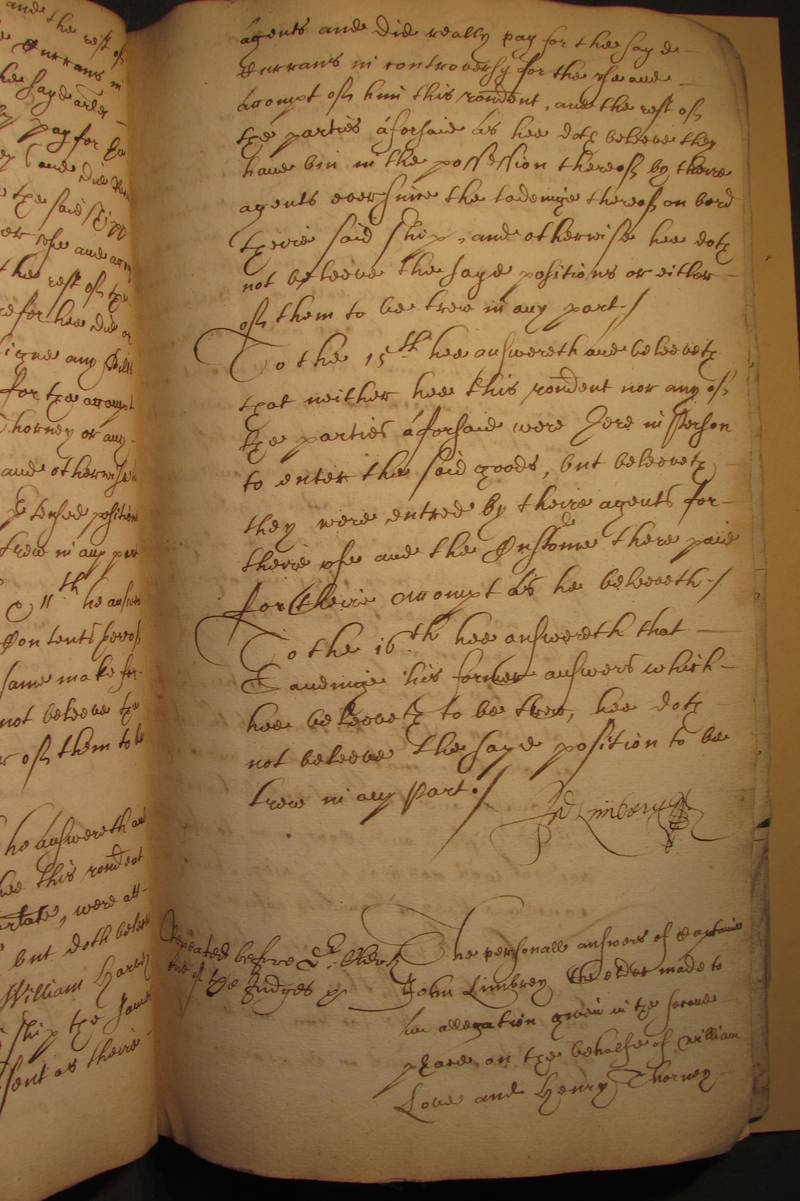 and the rest of
Currans in
the sayd
pay for
and did
the said shipp
use and
the rest of the
hee did
signe any
for the accompt
Thorney or any
and otherwise
pretensed position
trew in any part
11th he answ
Contents hereof
same make for
not beleeve the
of them to be
he answereth and
hee this rendent
were att
but doth beleeve
William Harvey
ship the same
sent as theire
agents and did really pay for the sayd
Currans in controversy for the use and
accompt of him this rendent, and the rest of
the parties aforsaid as hee doth beleeve they
have bin in the possession thereof by theire
agents ever since the ladeinge thereof on bord
theire said ship, and otherwise hee doth
not beleeve the sayd positions or either
of them to be trew in any part./
To the 15th hee answereth and beleeveth
that neither hee this rendent nor any of
the parties aforsaid were here in person
to enter the said goods, but beleeveth
they were entred by theire agents for
theire use and the Custome there paid
for theire accompt as he beleeveth./
To the 16th hee answereth that
Saveinge his former answers which
hee beleeveth to be trew, hee doth
not beleeve the sayd position to be
trew in any part./
Jo Limbery
Repeated before Dr. Clerk
one of the Judges
The personall answers of Captaine
John Limbrey the elder made to
the allegation given in the second
place on the behalfe of William
Love and Henry Thorney